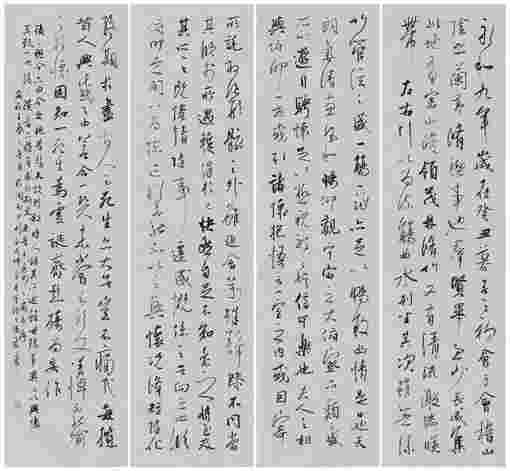 永和九年歲在癸丑暮春之初會于會稽山
陰之蘭亭脩禊事也群賢畢至少長咸集
此地有崇山峻領茂林脩竹又有清流激湍暎
帶左右引以為流觴曲水列坐其次雖無絲
竹管弦之盛一觴一詠亦足以暢敘幽情是日也天
朗氣清惠風和暢仰觀宇宙之大俯察品類之盛
所以遊目騁懷足以極視聽之娛信可樂也夫人之相
與俯仰一世或取諸懷抱悟言一室之內或因寄
所託放浪形骸之外雖趣舍萬殊靜躁不同當
其欣於所遇暫得於己快然自足不知老之將至及
其所之既倦情隨事遷感慨係之矣向之所欣
俛仰之間以為陳迹猶不能不以之興懷況脩短隨化
終期於盡古人云死生亦大矣豈不痛哉每攬
昔人興感之由若合一契未嘗不臨文嗟悼不能喻
之於懷固知一死生為虛誕齊彭殤為妄作
後之視今亦由今之視昔悲夫故列敘時人錄其所述雖世殊事異所以興懷
其致一也後之覽者亦將有感於斯文